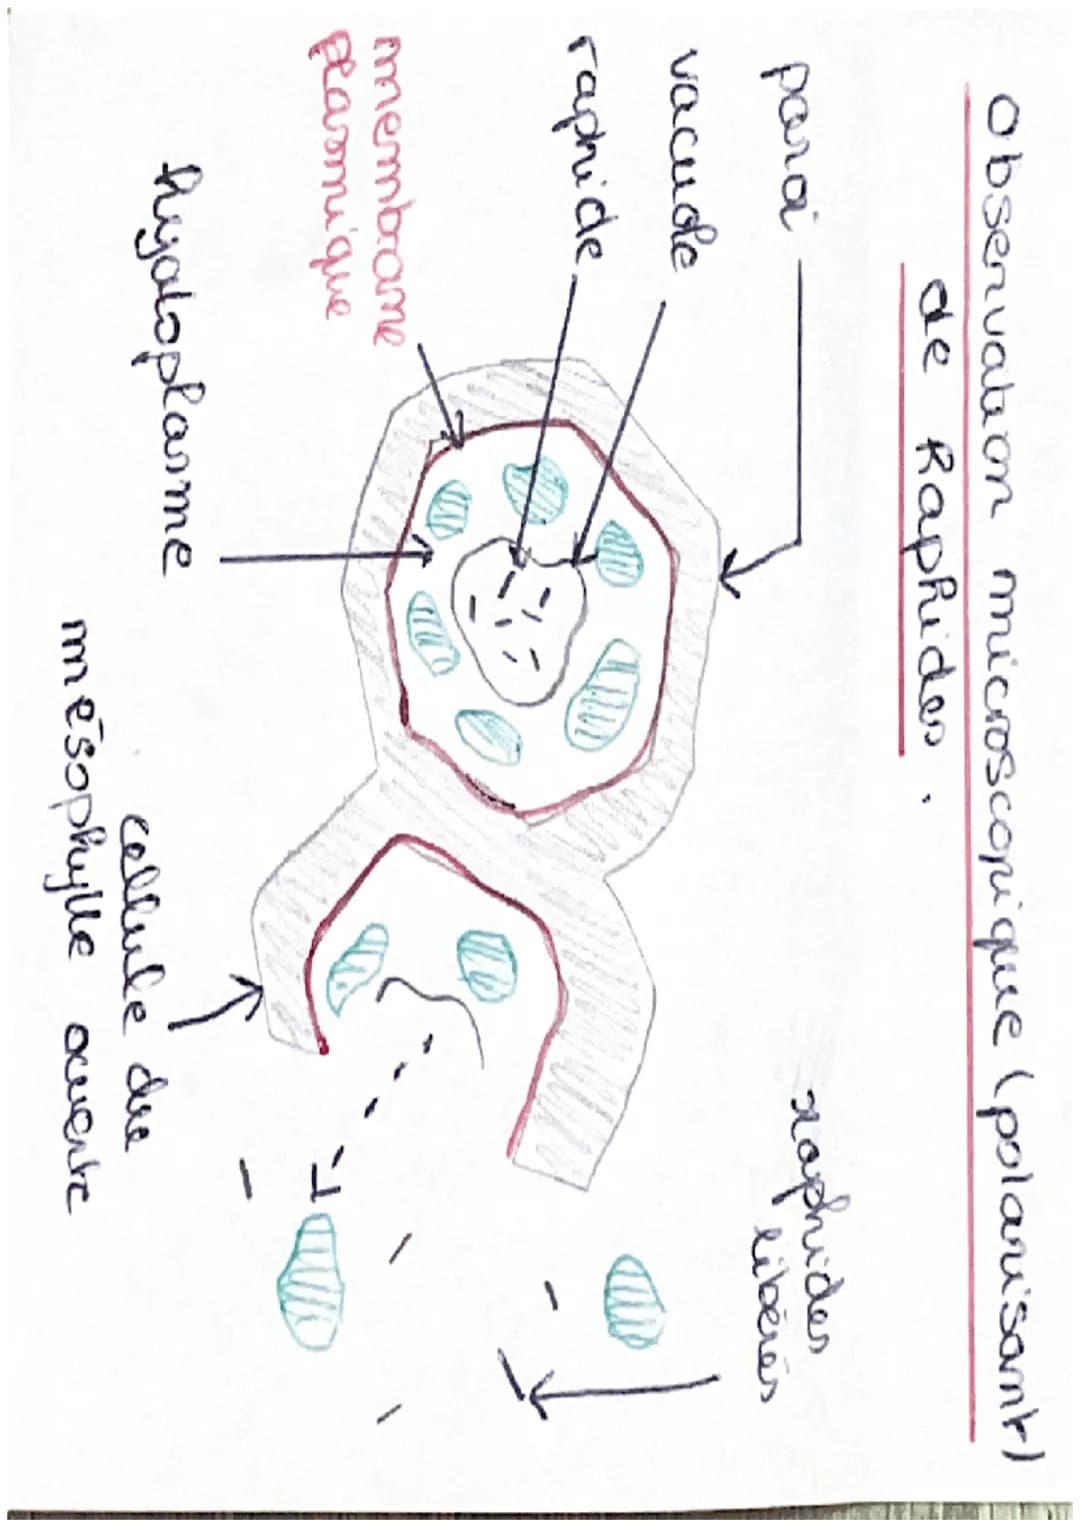 Observation microscopique (polarisant)
de Raphides.
paroi
vacuole
raphide
membrane
plasmique
hyaloplasme
cellule du
mésophylle ouverte
raphides
libérés